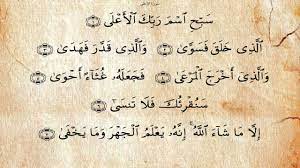 سَبِّحِ ٱسۡمَ رَبِّكَ ٱلۡأَعۡلَى ١
ٱلَّذِي خَلَقَ فَسَوَّىٰ ٢ وَٱلَّذِي قَدَّرَ فَهَدَىٰ ٣
وَٱلَّذِيٓ أَخۡرَجَ ٱلۡمَرۡعَىٰ ٤ فَجَعَلَهُۥ غُثَآءً أَحۡوَىٰ ٥
سَنُقۡرِئُكَ فَلَا تَنسَىٰٓ ٦
إِلَّا مَا شَآءَ ٱللَّهُۚ إِنَّهُۥ يَعۡلَمُ ٱلۡجَهۡرَ وَمَا يَخۡفَىٰ ٧